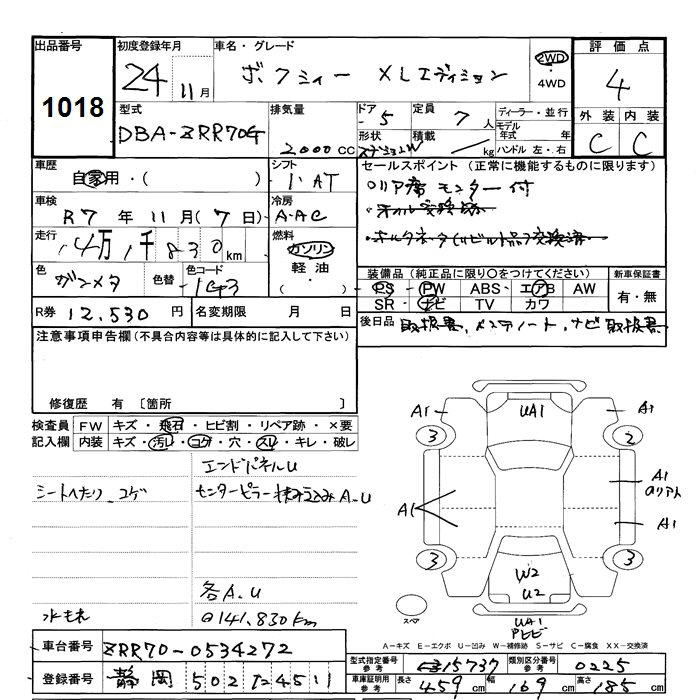 出品番号 初度登録年月 車名・グレード 評価点
1018 24 11月 ボクシィー XLエディション 2WD・4WD 4
型式 排気量 ドア 定員 ディーラー・並行 外装 内装
DBA-ZRR70G 2000CC 5 7人 モデル年式 年 C C
形状 積載 kg ハンドル 左・右
車歴 シフト セールスポイント (正常に機能するものに限ります)
自家用・( ) 1・AT リア席モニター付
車検 冷房
R7年11月(7日) A-AC
走行 燃料
14万1千830km ガソリン
色 色替 色コード 軽油
ガンメタ 1G3 ・( )
装備品 (純正品に限り○をつけてください) 新車保証書
PS PW ABS・エアB AW 有・無
SR ナビ TV カワ
R券 12,530円 名変期限 月 日
後日品 取扱書、メンテノート、ナビ取扱書
注意事項申告欄(不具合内容等は具体的に記入して下さい)
修復歴 有 〔箇所 〕
検査員 FW キズ・飛石・ヒビ割・リペア跡・×要
記入欄 内装 キズ・汚レ・コゲ・穴・スレ・キレ・破レ
エンドパネルU
シートへたり コゲ
各A.U
水もれ
141,830km
A1 UA1 A1
3 2
A1
A1 A1
3 3
W2
U2
スペア
UA1
A=キズ E=エクボ U=凹み W=補修跡 S=サビ C=腐食 XX=交換済
車台番号 ZRR70-0534272
型式指定番号 参考 15737 類別区分番号 参考 0225
登録番号 静岡 502
車庫証明用 参考 長さ 459cm 幅 169cm 高さ 185cm